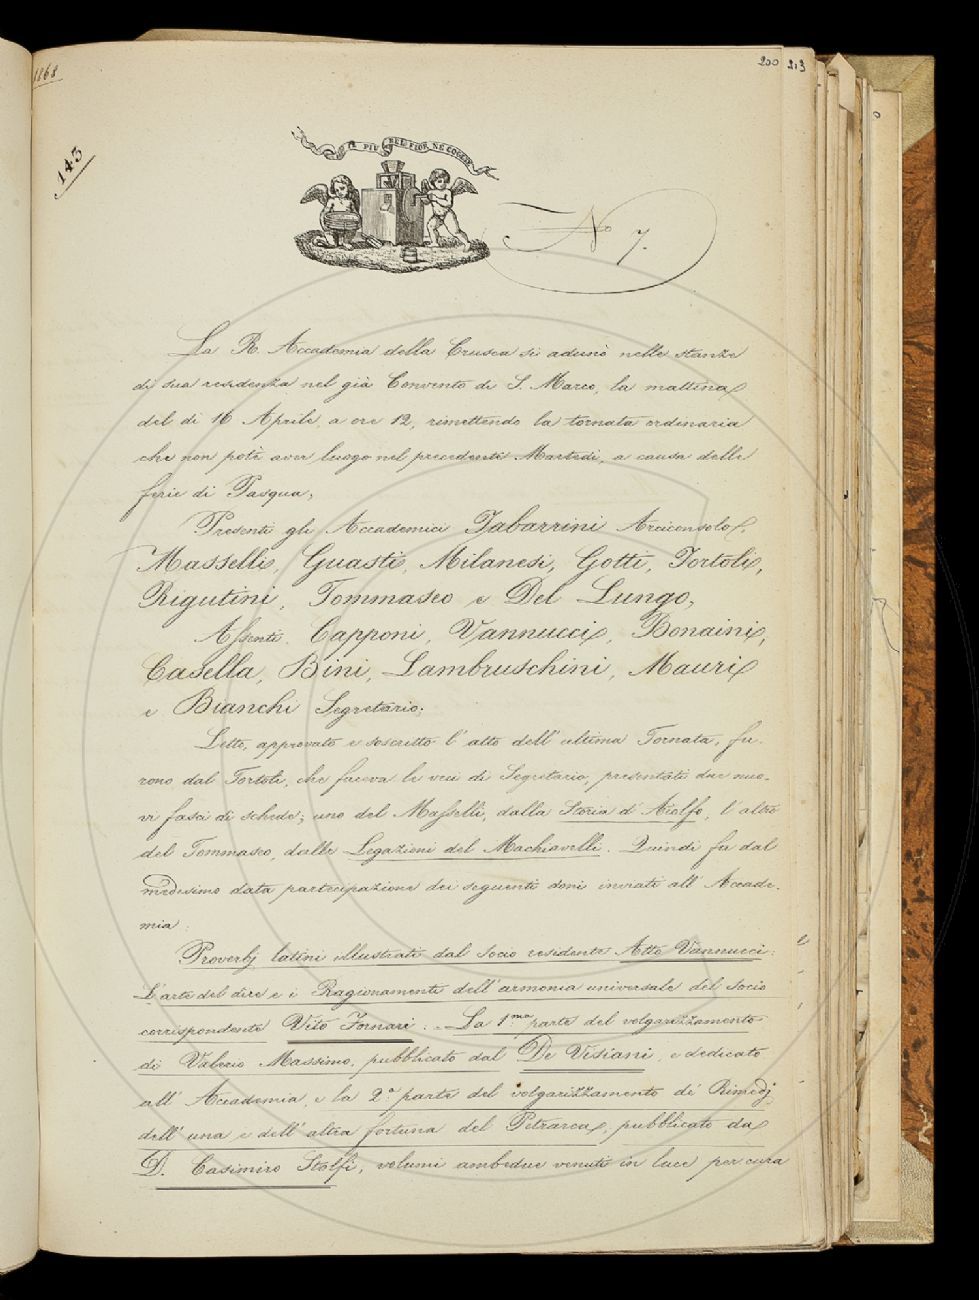 1868
200 213
143
IL PIÙ BEL FIOR NE COGLIE
N.o 7.
La R. Accademia della Crusca si adunò nelle stanze
di sua residenza nel già Convento di S. Marco, la mattina
del dì 16 Aprile, a ore 12, rimettendo la tornata ordinaria
che non potè aver luogo nel precedente Martedì, a causa delle
ferie di Pasqua;
Presenti gli Accademici Tabarrini Arciconsolo,
Masselli, Guasti, Milanesi, Gotti, Tortoli,
Rigutini, Tommaseo e Del Lungo,
Assenti. Capponi, Vannucci, Bonaini,
Casella, Bini, Lambruschini, Mauri
e Bianchi Segretario;
Letto, approvato e soscritto l'atto dell'ultima Tornata, fu-
rono dal Tortoli, che faceva le veci di Segretario, presentati due nuo-
vi fasci di schede; uno del Masselli, dalla Storia d'Aiolfo, l'altro
del Tommaseo, dalle Legazioni del Machiavelli. Quindi fu dal
medesimo data partecipazione dei seguenti doni inviati all'Accade-
mia:
Proverbj latini illustrati dal Socio residente Atto Vannucci:
L'arte del dire e i Ragionamenti dell'armonia universale del Socio
corrispondente Vito Fornari: - La 1.ma parte del volgarizzamento
di Valerio Massimo, pubblicato dal De Visiani, e dedicato
all'Accademia, e la 2.a parte del volgarizzamento de' Rimedj
dell'una e dell'altra fortuna del Petrarca, pubblicato da
D. Casimiro Stolfi, volumi ambedue venuti in luce per cura